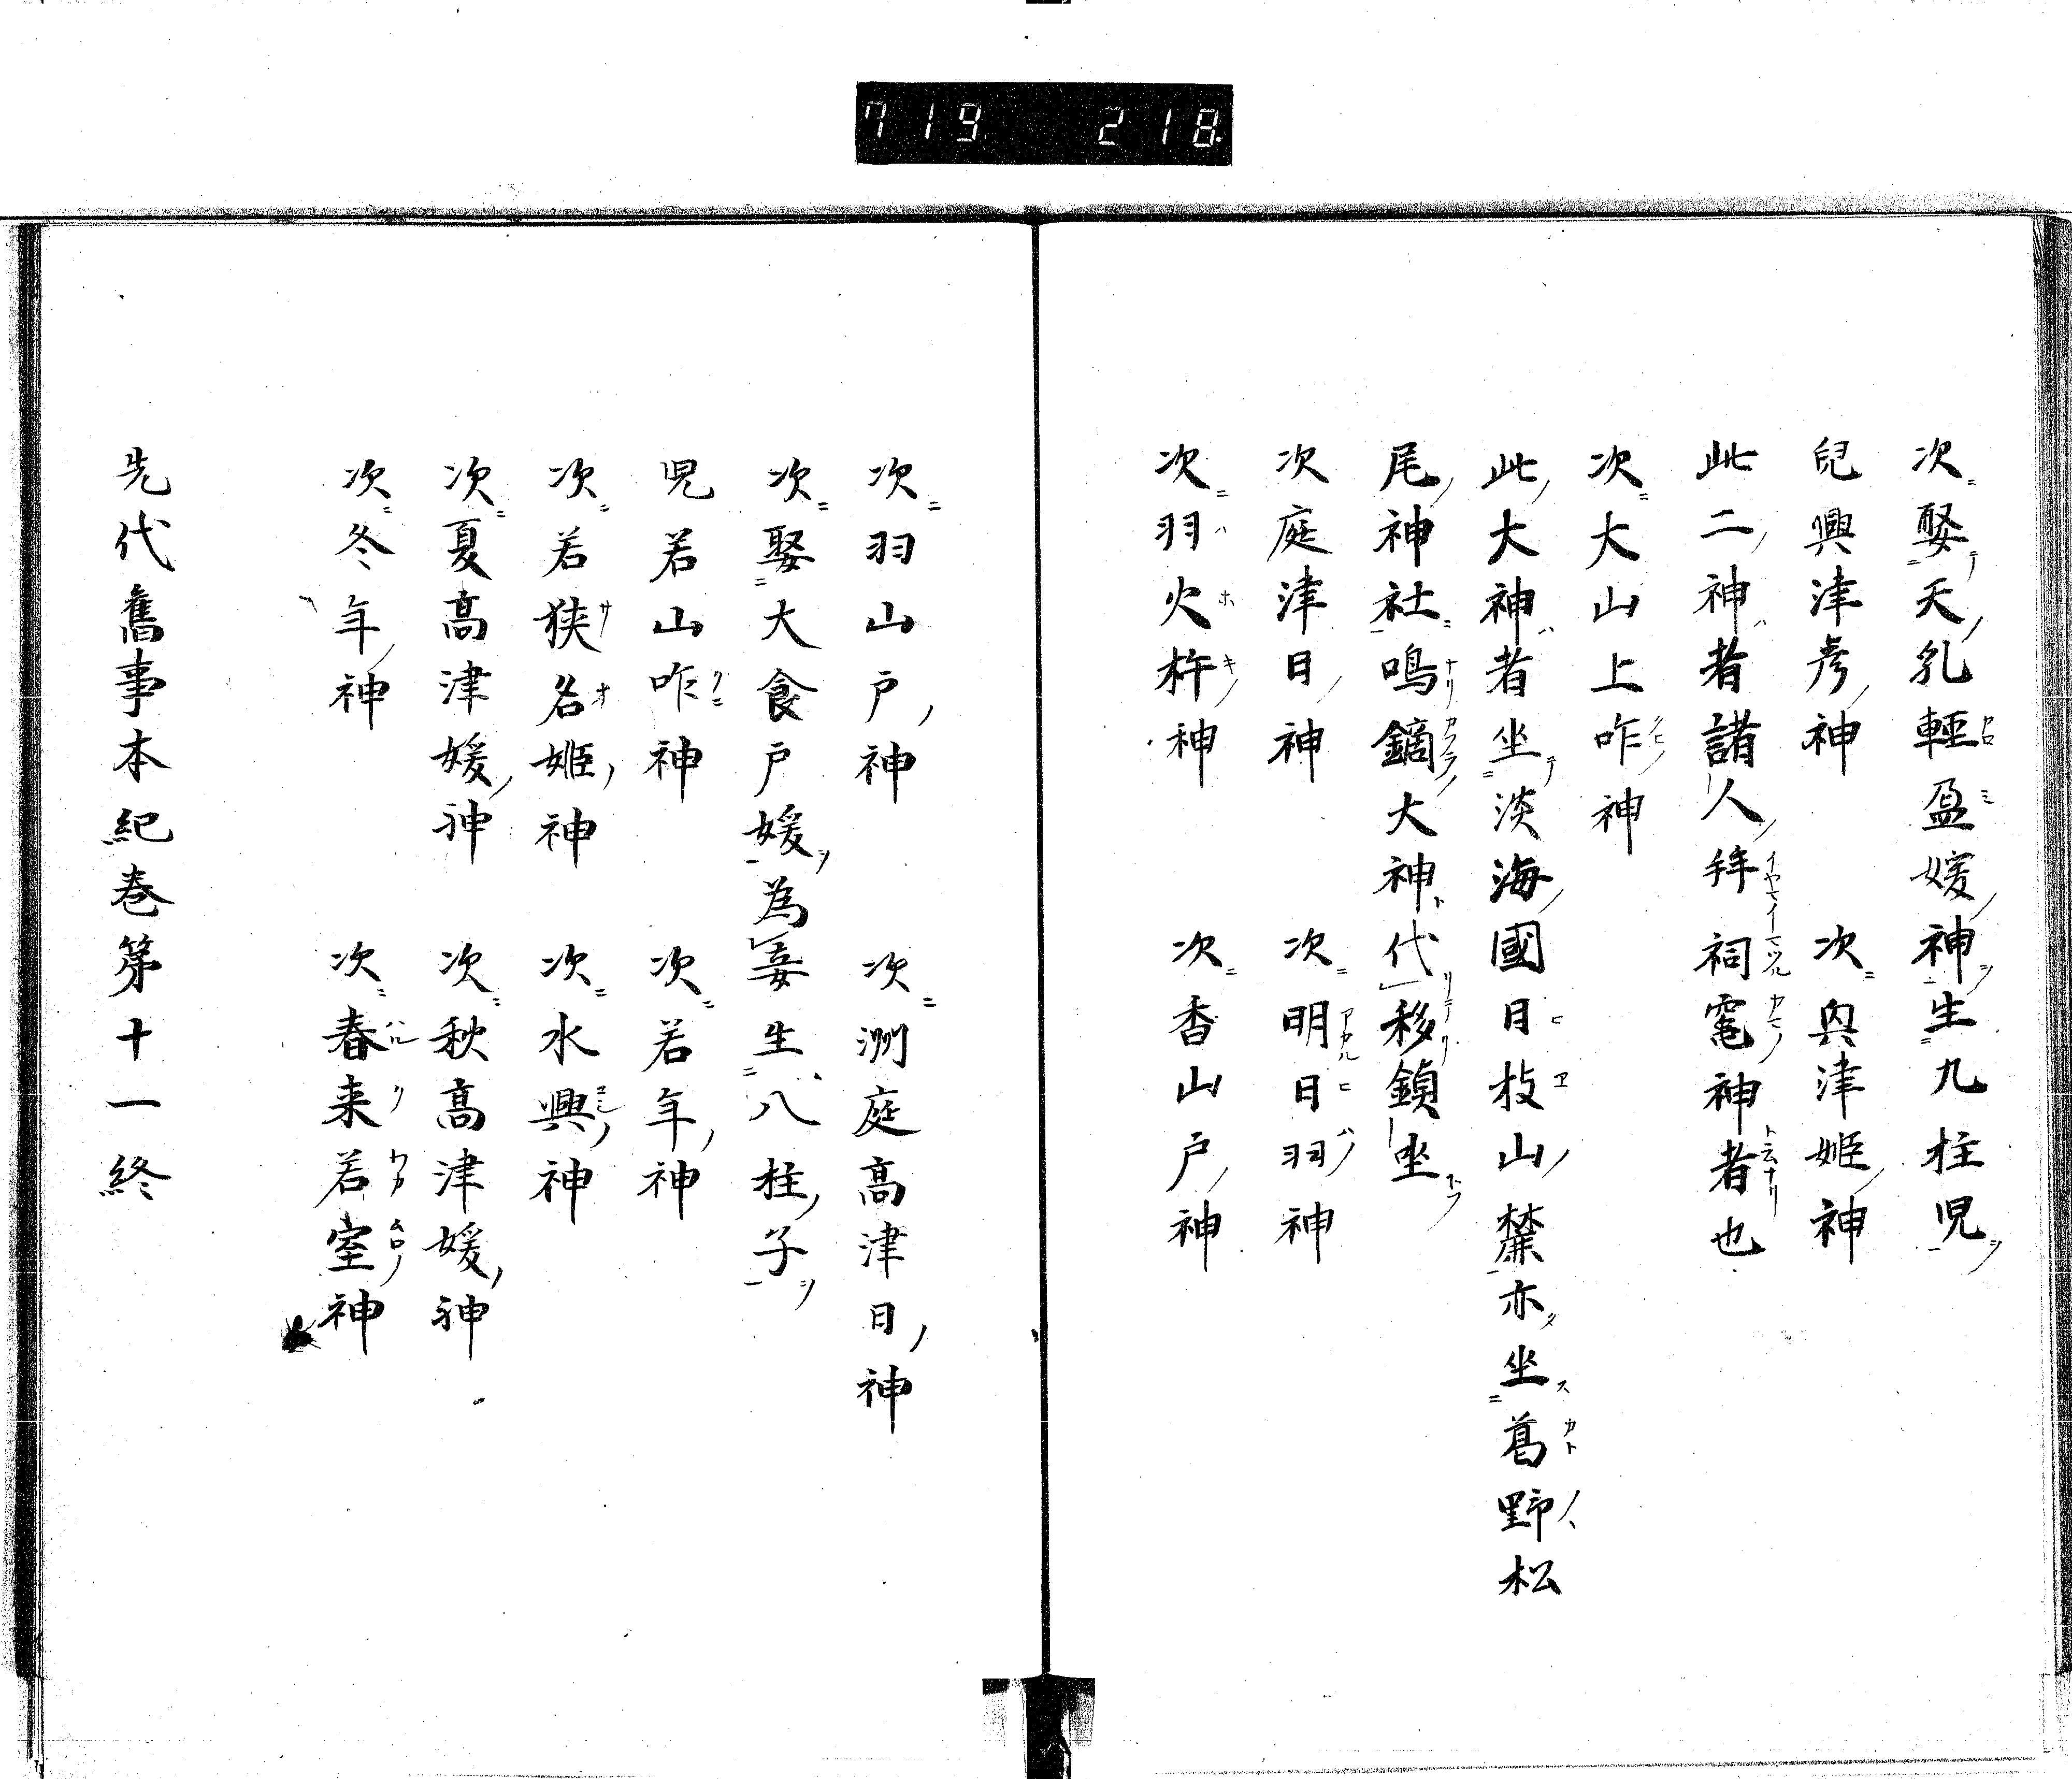 719 218
次娶天乳輕盈媛神生九柱児
兒興津彦神　次奥津姫神
此二神者諸人拜祠竃神者也
次大山上咋神
此大神者坐淡海國日枝山麓亦坐葛野松
尾神社鳴鏑大神代移鎮坐
次庭津日神　次明日羽神
次羽火杵神　次香山戸神
次羽山戸神　次洲庭高津日神
次娶大食戸媛為妾生八柱子
児若山咋神　次若年神
次若狭名姫神　次水興神
次夏高津媛神　次秋高津媛神
次冬年神　次春来若室神
先代舊事本紀巻第十一終